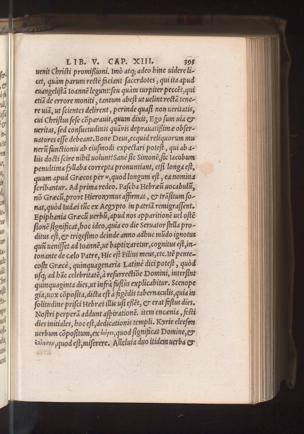 LIB. V. CAP. XIII. 395
uenit Christi promissioni. Imò atq; adeo hinc uidere li-
cet, quàm parum rectè faciant sacerdotes, qui ita apud
euangelistã Ioannẽ legunt: seu quàm turpiter peccẽt, qui
etiã de errore moniti, tantum abest ut uelint rectã tene-
re uiã, ut scientes delirent, perinde quasi non ueritatis,
cui Christus sese cõparauit, quum dixit, Ego sum uia &
ueritas, sed consuetudinis quãuis deprauatissimæ obser-
uatores esse debeant. Bone Deus, ecquid reliquorum mu
nerũ functionis ab eiusmodi expectari potest, qui ab a-
liis docti scire nihil uolunt? Sanè sic Simonẽ, sic Iacobum
penultima syllaba correpta pronuntiant, etsi longa est,
quum apud Græcos per ω, quod longum est, ea nomina
scribantur. Ad prima redeo. Pascha Hebræũ uocabulũ,
nõ Græcũ, prout Hieronymus affirmat, & trãsitum so-
nat, quòd Iudæi tũc ex Aegypto in patriã remigrassent.
Epiphania Græcũ uerbũ, apud nos apparitionẽ uel ostẽ
sionẽ significat, hoc ideo, quia eo die Seruator stella pro-
ditus est, & trigesimo deinde anno adhuc nulló ignotus
quũ uenisset ad Ioannẽ, ut baptizaretur, cognitus est, in-
tonante de cœlo Patre, Hic est Filius meus, etc. itẽ pente-
costè Græcè, quinquagenaria Latinè dici potest, quòd
usq; ad hãc celebritatẽ, à resurrectiõe Domini, intersint
quinquaginta dies, ut infrà fusiùs explicabitur. Scenope
gia, nox cõposita, dicta est à figẽdis tabernaculis, quia in
solitudine prisci Hebrei illis usi essẽt, & erat festus dies.
Nostri perperã addunt aspirationẽ. item encænia, festi
dies initiales, hoc est, dedicationis templi. Kyrie eleeson
uerbum cõpositum, ex κύριε, quod significat Domine, &
ἐλέησον, quod est, miserere. Alleluia duo itidem uerba &